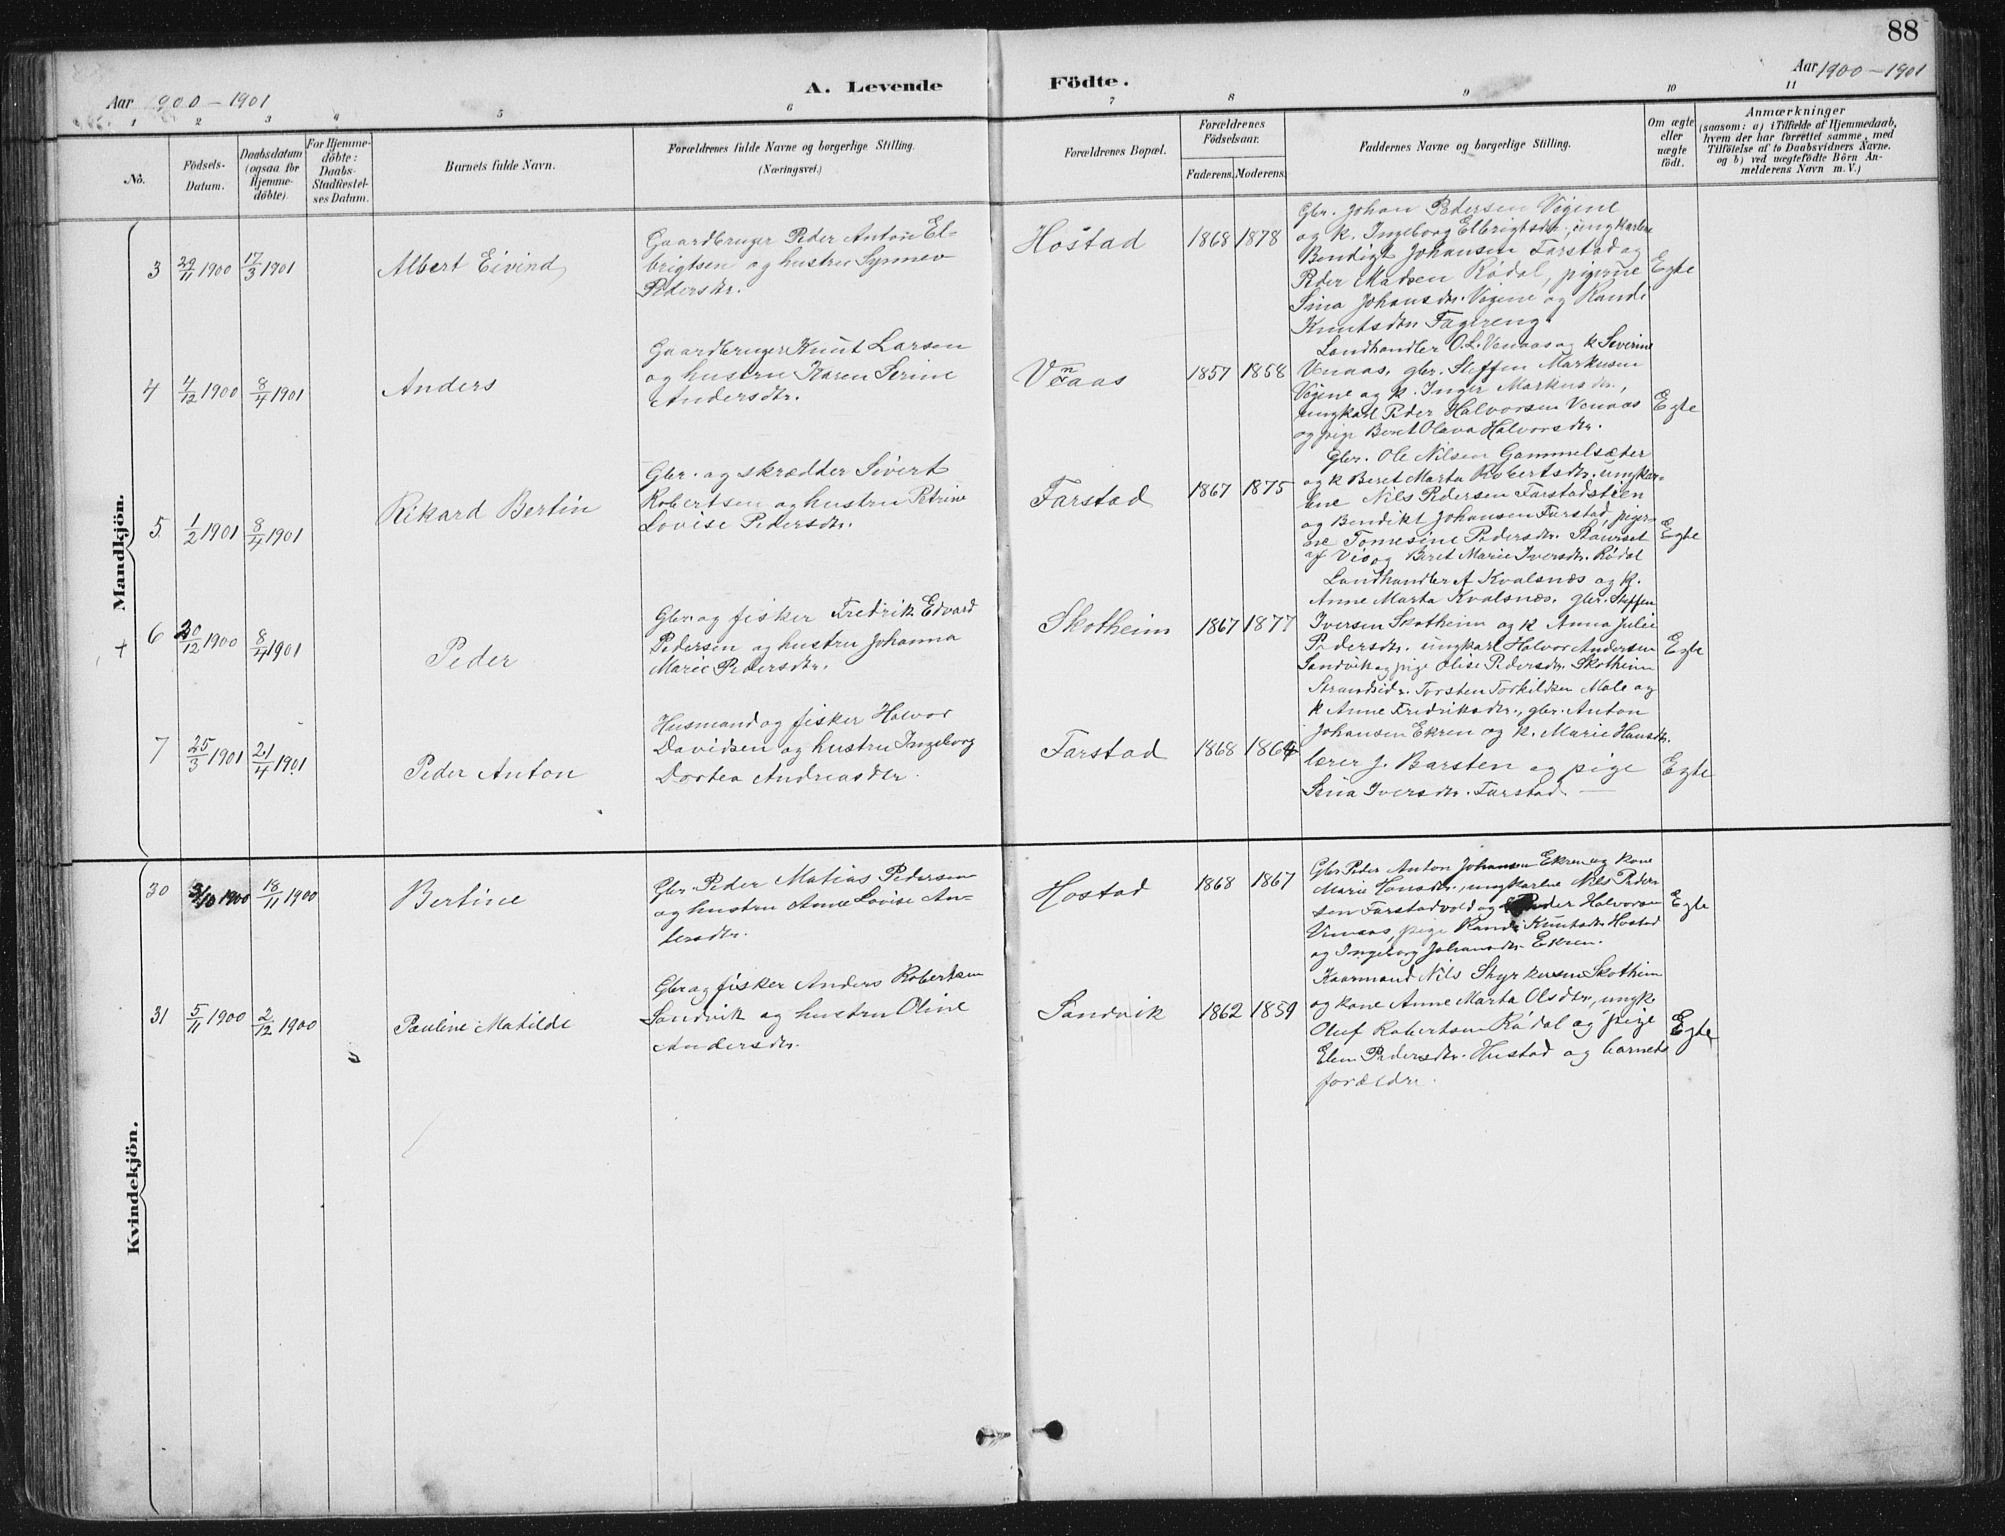 88
Aar 1900 - 1901
A. Levende Födte.
Aar 1900 - 1901
1 2 3 4 5 6 7 8 9 10 11
No.
Födsels-
Datum.
Daabsdatum
(ogsaa for
Hjemme-
döbte).
For Hjemme-
döbte:
Daabs-
Stadfæstel-
ses Datum.
Barnets fulde Navn.
Forældrenes fulde Navne og borgerlige Stilling.
(Næringsvei.)
Forældrenes Bopæl.
Forældrenes
Födselsaar.
Faderens. Moderens.
Faddernes Navne og borgerlige Stilling.
Om ægte
eller
uægte
födt.
Anmærkninger
(saasom: a) i Tilfælde af Hjemmedaab,
hvem der har forrettet samme, med
Tilföielse af to Daabsvidners Navne.
og b) ved uægtefödte Börn An-
melderens Navn m. V.)
Mandkjön.
3 29/11 1900 17/3 1901
Albert Eivind
Gaardbruger Peder Anton El-
brigtsen og hustru Synnev
Pedersdtr.
Hostad
1868 1878
Gbr. Johan Pedersen Vigine
og k. Ingeborg Elbrigtsdtr, ungkarlene
Bendigt Johansen Farstad og
Peder Madsen Rödal, pigerne
Sina Johansdtr. Vigine og Randi
Knutsdtr Fagereng.
Egte
4 4/12 1900 8/4 1901
Anders
Gaardbruger Knut Larsen
og hustru Karen Serine
Andersdtr.
Venaas
1857 1868
Landhandler O. L. Venaas og k Severine
Venaas, gbr. Steffen Markusen
Vigine og k. Inger Markusdtr,
ungkarl Peder Halvorsen Venaas
og pige Beret Olava Halvorsdtr.
Egte
5 1/2 1901 8/4 1901
Rikard Bertin
Gbr. og skrædder Sivert
Robertsen og hustru Petrine
Lovise Pedersdtr.
Farstad
1867 1875
Gbr. Ole Nilsen Gammelsæter
og k Beret Marta Robertsdtr. ungkar-
lene Nils Pedersen Farstadsteen
og Bendikt Johansen Farstad, piger-
ne Tomesine Pedersdtr. Staurset
af Vis og Beret Marie Iversdtr. Rödal
Ægte
+ 6 20/12 1900 8/4 1901
Peder
Gbr. og fisker Fredrik Edvard
Pedersen og hustru Johanna
Marie Pedersdtr.
Skotheim
1867 1877
Landhandler A Kvalsnæs og k.
Anne Marta Kvalsnæs. gbr. Steffen
Iversen Skotheim og k Anna Julie
Pedersdtr. ungkarl Halvor Andersen
Sandvik og pige Olise Pedersdtr. Skotheim
Egte
7 25/3 1901 21/4 1901
Peder Anton
Husmand og fisker Halvor
Davidsen og hustru Ingeborg
Dortea Andreasdtr.
Farstad
1868 1864
Strandsidr. Torsten Torkildsen Male og
k Anne Fredriksdtr., gbr. Anton
Johansen Ekren og k. Marie Hansdtr.
lærer J. Barsten og pige
Sina Iversdtr. Farstad.
Egte
Kvindekjön.
30 3/10 1900 18/11 1900
Bertine
Gbr. Peder Matias Pedersen
og hustru Anne Lovise An-
dersdtr.
Hostad
1868 1867
Gbr Peder Anton Johansen Ekren og kone
Marie Hansdtr., ungkarlne Nils Peder-
sen Farstadvold og Peder Halvorsen
Venaas, pige Randi Knutsdtr Hostad
og Ingeborg Johansdtr. Ekren.
Egte
31 5/11 1900 2/12 1900
Pauline Matilde
Gbr og fisker Anders Robertsen
Sandvik og hustru Oline
Andersdtr.
Sandvik
1862 1859
Kaarmand Nils Styrkersen Skotheim
og kone Anne Marta Olsdtr, ungk.
Oluf Robertsen Rödal og pige
Elen Pedersdtr. Hustad og barnets
forældre.
Egte